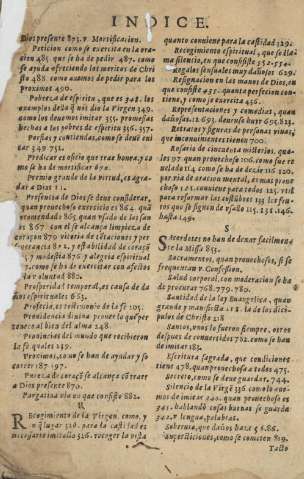 INDICE.
Dios presente 873. v Mortificacion.
Peticion como se exercita en la oracion
485 que se ha de pedir 487. como
se ayuda ofreciendo los meritos de Christo
488 como auemos de pedir para los
proximos 490.
Pobreza de espiritu, que es 348. los
exemplos della q nos dio la Virgen 349.
como los deuemos imitar 351. promesas
hechas a los pobres de espiritu 356. 357.
Porfias y contiendas, como se deue euitar
548 751.
Predicar es oficio que trae honra, y como
se ha de mortificar 670.
Premio grande de la virtud, es agradar
a Dios 11.
Presencia de Dios se deue considerar,
quan prouechoso exercicio es 864. quã
encomendado 865. quan vsado de los santos
867 con el se alcança limpieza de
coraçon 870 vitoria de
y modestia 876 y alegria espiritual
como se ha de exercitar con afectos
de voluntad 882.
Prosperidad temporal, es causa de daños
espirituales 663.
Profecia, es testimonio de la fe 105.
Prouidencia diuina prouee lo que pertenece
al bien del alma 248.
Prouincias del mundo que recibieron
la Fe quales 259.
Proximos, como se han de ayudar y socorrer
187 197.
Pureza de coraçõ se alcança cõ traer
a Dios presente 870.
R
Recogimiento de la Virgen como, y
en q lugar 516. para la castidad es
necessario imitarlo 516. recoger la vista
quanto conuiene para la castidad 529.
Recogimiento espiritual, que se llama
silencio, en que consiste 552. 554.
Regalos sensuales muy dañosos 629.
Resignacion en las manos de Dios, en
que consiste 435. quanta perfecion contiene,
y como se exercita 436.
Representaciones y comedias, quan
dañosas. 12 693. deuense huyr 695. 823.
Retratos y figuras de personas vinas,
que inconuenientes tienen 700.
Rosario de cincuenta misterios. quales
97 quan prouechoso 106. como fue reuelado
114 como se ha de dezir 116 120.
para vso de oracion mental, es mas prouechoso
121. conuiene para todos 125. vtil
para reformar las costũbres 133 los frutos
que se siguen de vsalo 115. 131. 146.
hasta 149.
S
Sacerdotes no han de dexar facilmente
la Missa 855.
Sacramentos, quan prouechosos, si se
frequentan v. Confession.
Salud corporal, con moderacion se ha
de procurar 768. 779. 781.
Santidad de la ley Euangelica, quan
grande y manifiesta 218. la de los discipulos
de Christo 218
Santos, vnos lo fueron siempre, otros
despues de conuertidos 702. como se han
de imitar 182.
Escritura sagrada, que condiciones
tiene 478. quan prouechosa a todos 475.
Secreto, como se deue guardar, 744.
Silencio de la Virgen 336. como lo auemos
de imitar 340. quan prouechoso es
341. hablando cosas buenas se guarda
342. v. lengua, palabras.
Soberuia, que daños haze 6. 86.
Supersticiones, como se cometen 819.
Talto